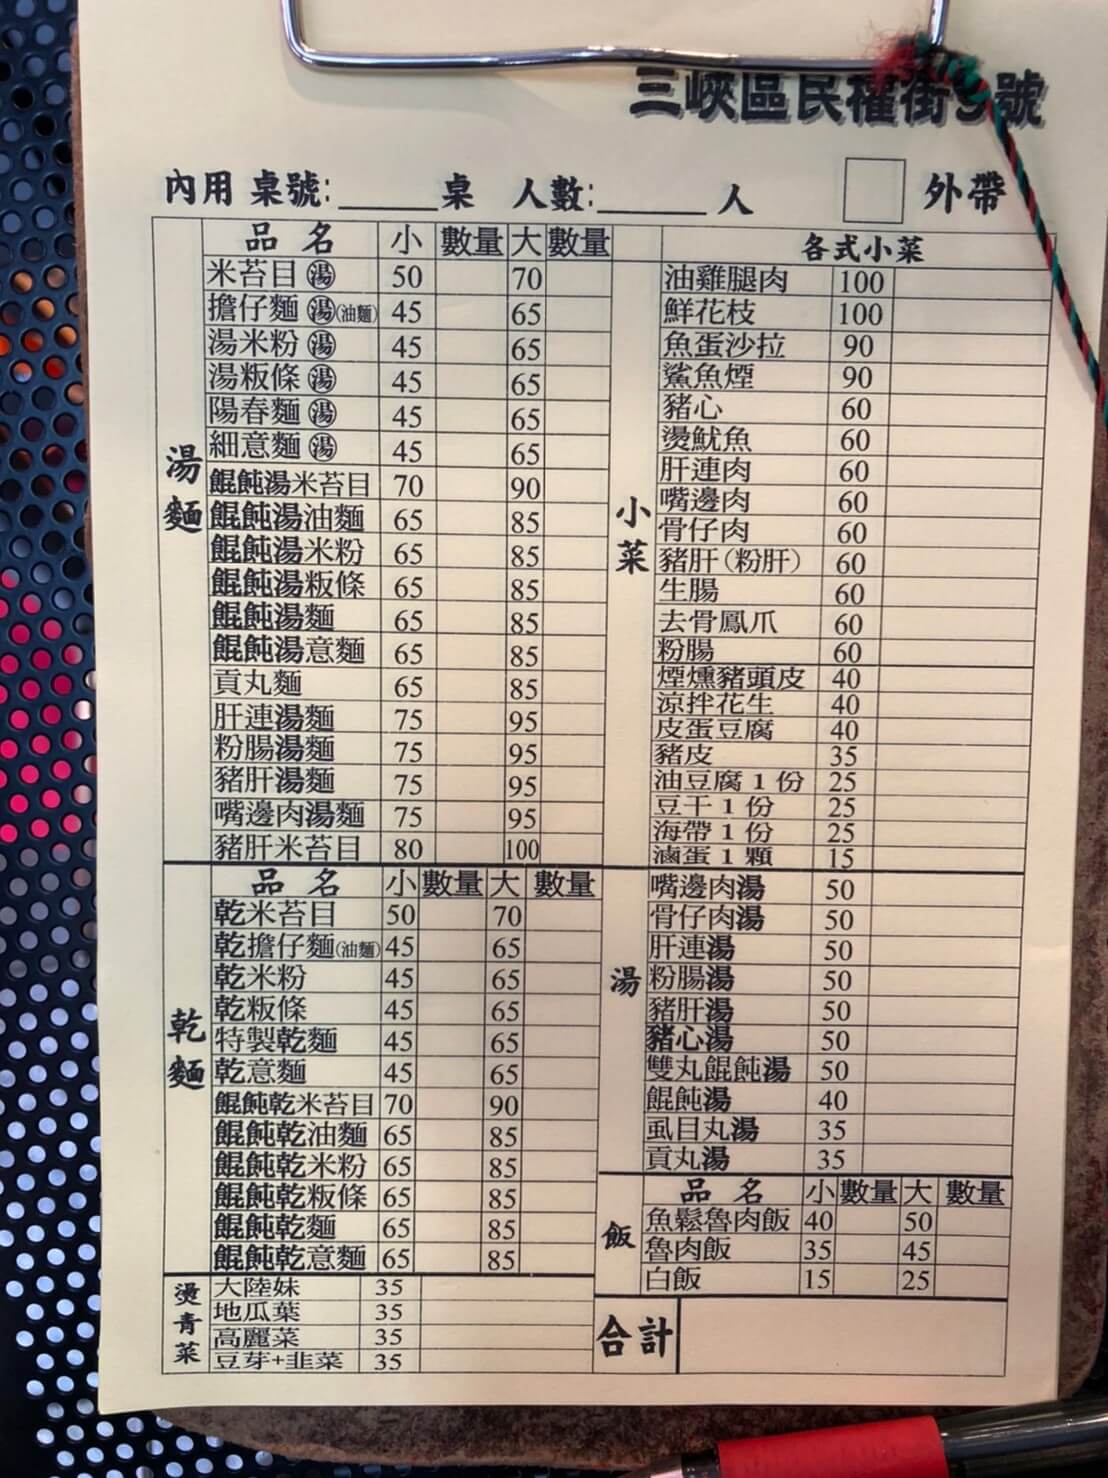 三峽區民權街9號
內用 桌號:______桌 人數:______人 外帶
湯麵
品名 小 數量 大 數量
米苔目 湯 50 70
擔仔麵 湯(油麵) 45 65
湯米粉 湯 45 65
湯粄條 湯 45 65
陽春麵 湯 45 65
細意麵 湯 45 65
餛飩湯米苔目 70 90
餛飩湯油麵 65 85
餛飩湯米粉 65 85
餛飩湯粄條 65 85
餛飩湯麵 65 85
餛飩湯意麵 65 85
貢丸麵 65 85
肝連湯麵 75 95
粉腸湯麵 75 95
豬肝湯麵 75 95
嘴邊肉湯麵 75 95
豬肝米苔目 80 100
乾麵
品名 小 數量 大 數量
乾米苔目 50 70
乾擔仔麵(油麵) 45 65
乾米粉 45 65
乾粄條 45 65
特製乾麵 45 65
乾意麵 45 65
餛飩乾米苔目 70 90
餛飩乾油麵 65 85
餛飩乾米粉 65 85
餛飩乾粄條 65 85
餛飩乾麵 65 85
餛飩乾意麵 65 85
燙青菜
大陸妹 35
地瓜葉 35
高麗菜 35
豆芽+韭菜 35
小菜
各式小菜
油雞腿肉 100
鮮花枝 100
魚蛋沙拉 90
鯊魚煙 90
豬心 60
燙魷魚 60
肝連肉 60
嘴邊肉 60
骨仔肉 60
豬肝(粉肝) 60
生腸 60
去骨鳳爪 60
粉腸 60
煙燻豬頭皮 40
涼拌花生 40
皮蛋豆腐 40
豬皮 35
油豆腐1份 25
豆干1份 25
海帶1份 25
滷蛋1顆 15
湯
嘴邊肉湯 50
骨仔肉湯 50
肝連湯 50
粉腸湯 50
豬肝湯 50
豬心湯 50
雙丸餛飩湯 50
餛飩湯 40
虱目丸湯 35
貢丸湯 35
飯
品名 小 數量 大 數量
魚鬆魯肉飯 40 50
魯肉飯 35 45
白飯 15 25
合計